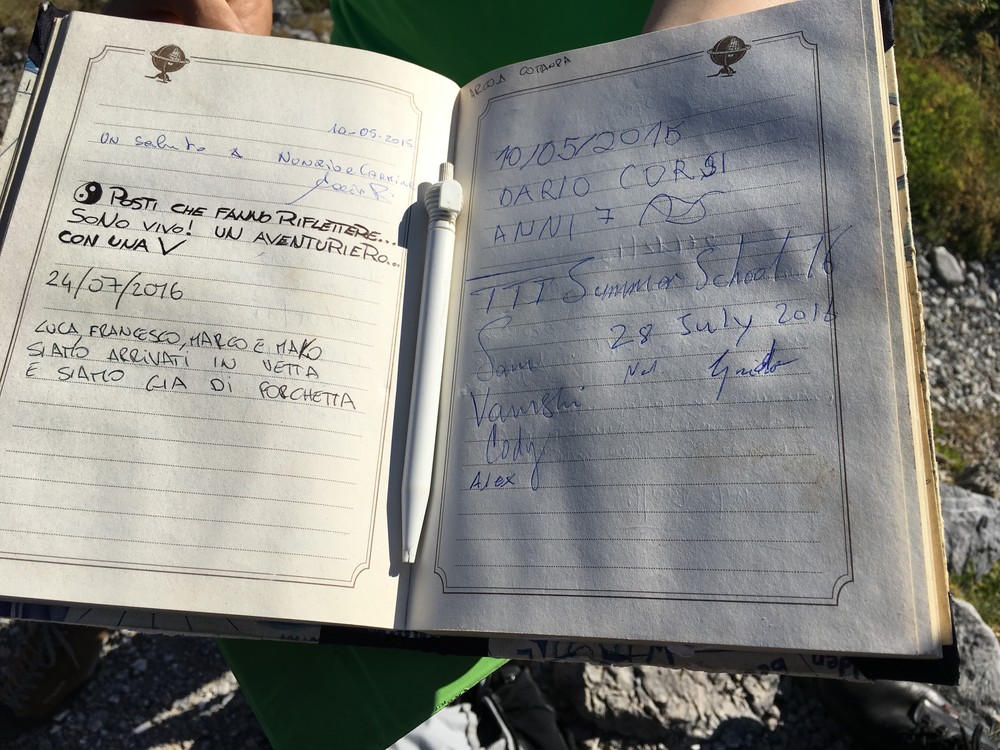 10-05-2015
UN saluto A
POSTI CHE FANNO RIFLETTERE...
SONO VIVO! UN AVENTURIERO...
CON UNA V
24/07/2016
LUCA, FRANCESCO, MARCO E MAKO
SIAMO ARRIVATI IN VETTA
E SIAMO GIA DI PORCHETTA
10/05/2015
DARIO CORSI
ANNI 7
TTT Summer School 16
Sam 28 July 2016
Guido
Vamshi
Cody
Alex